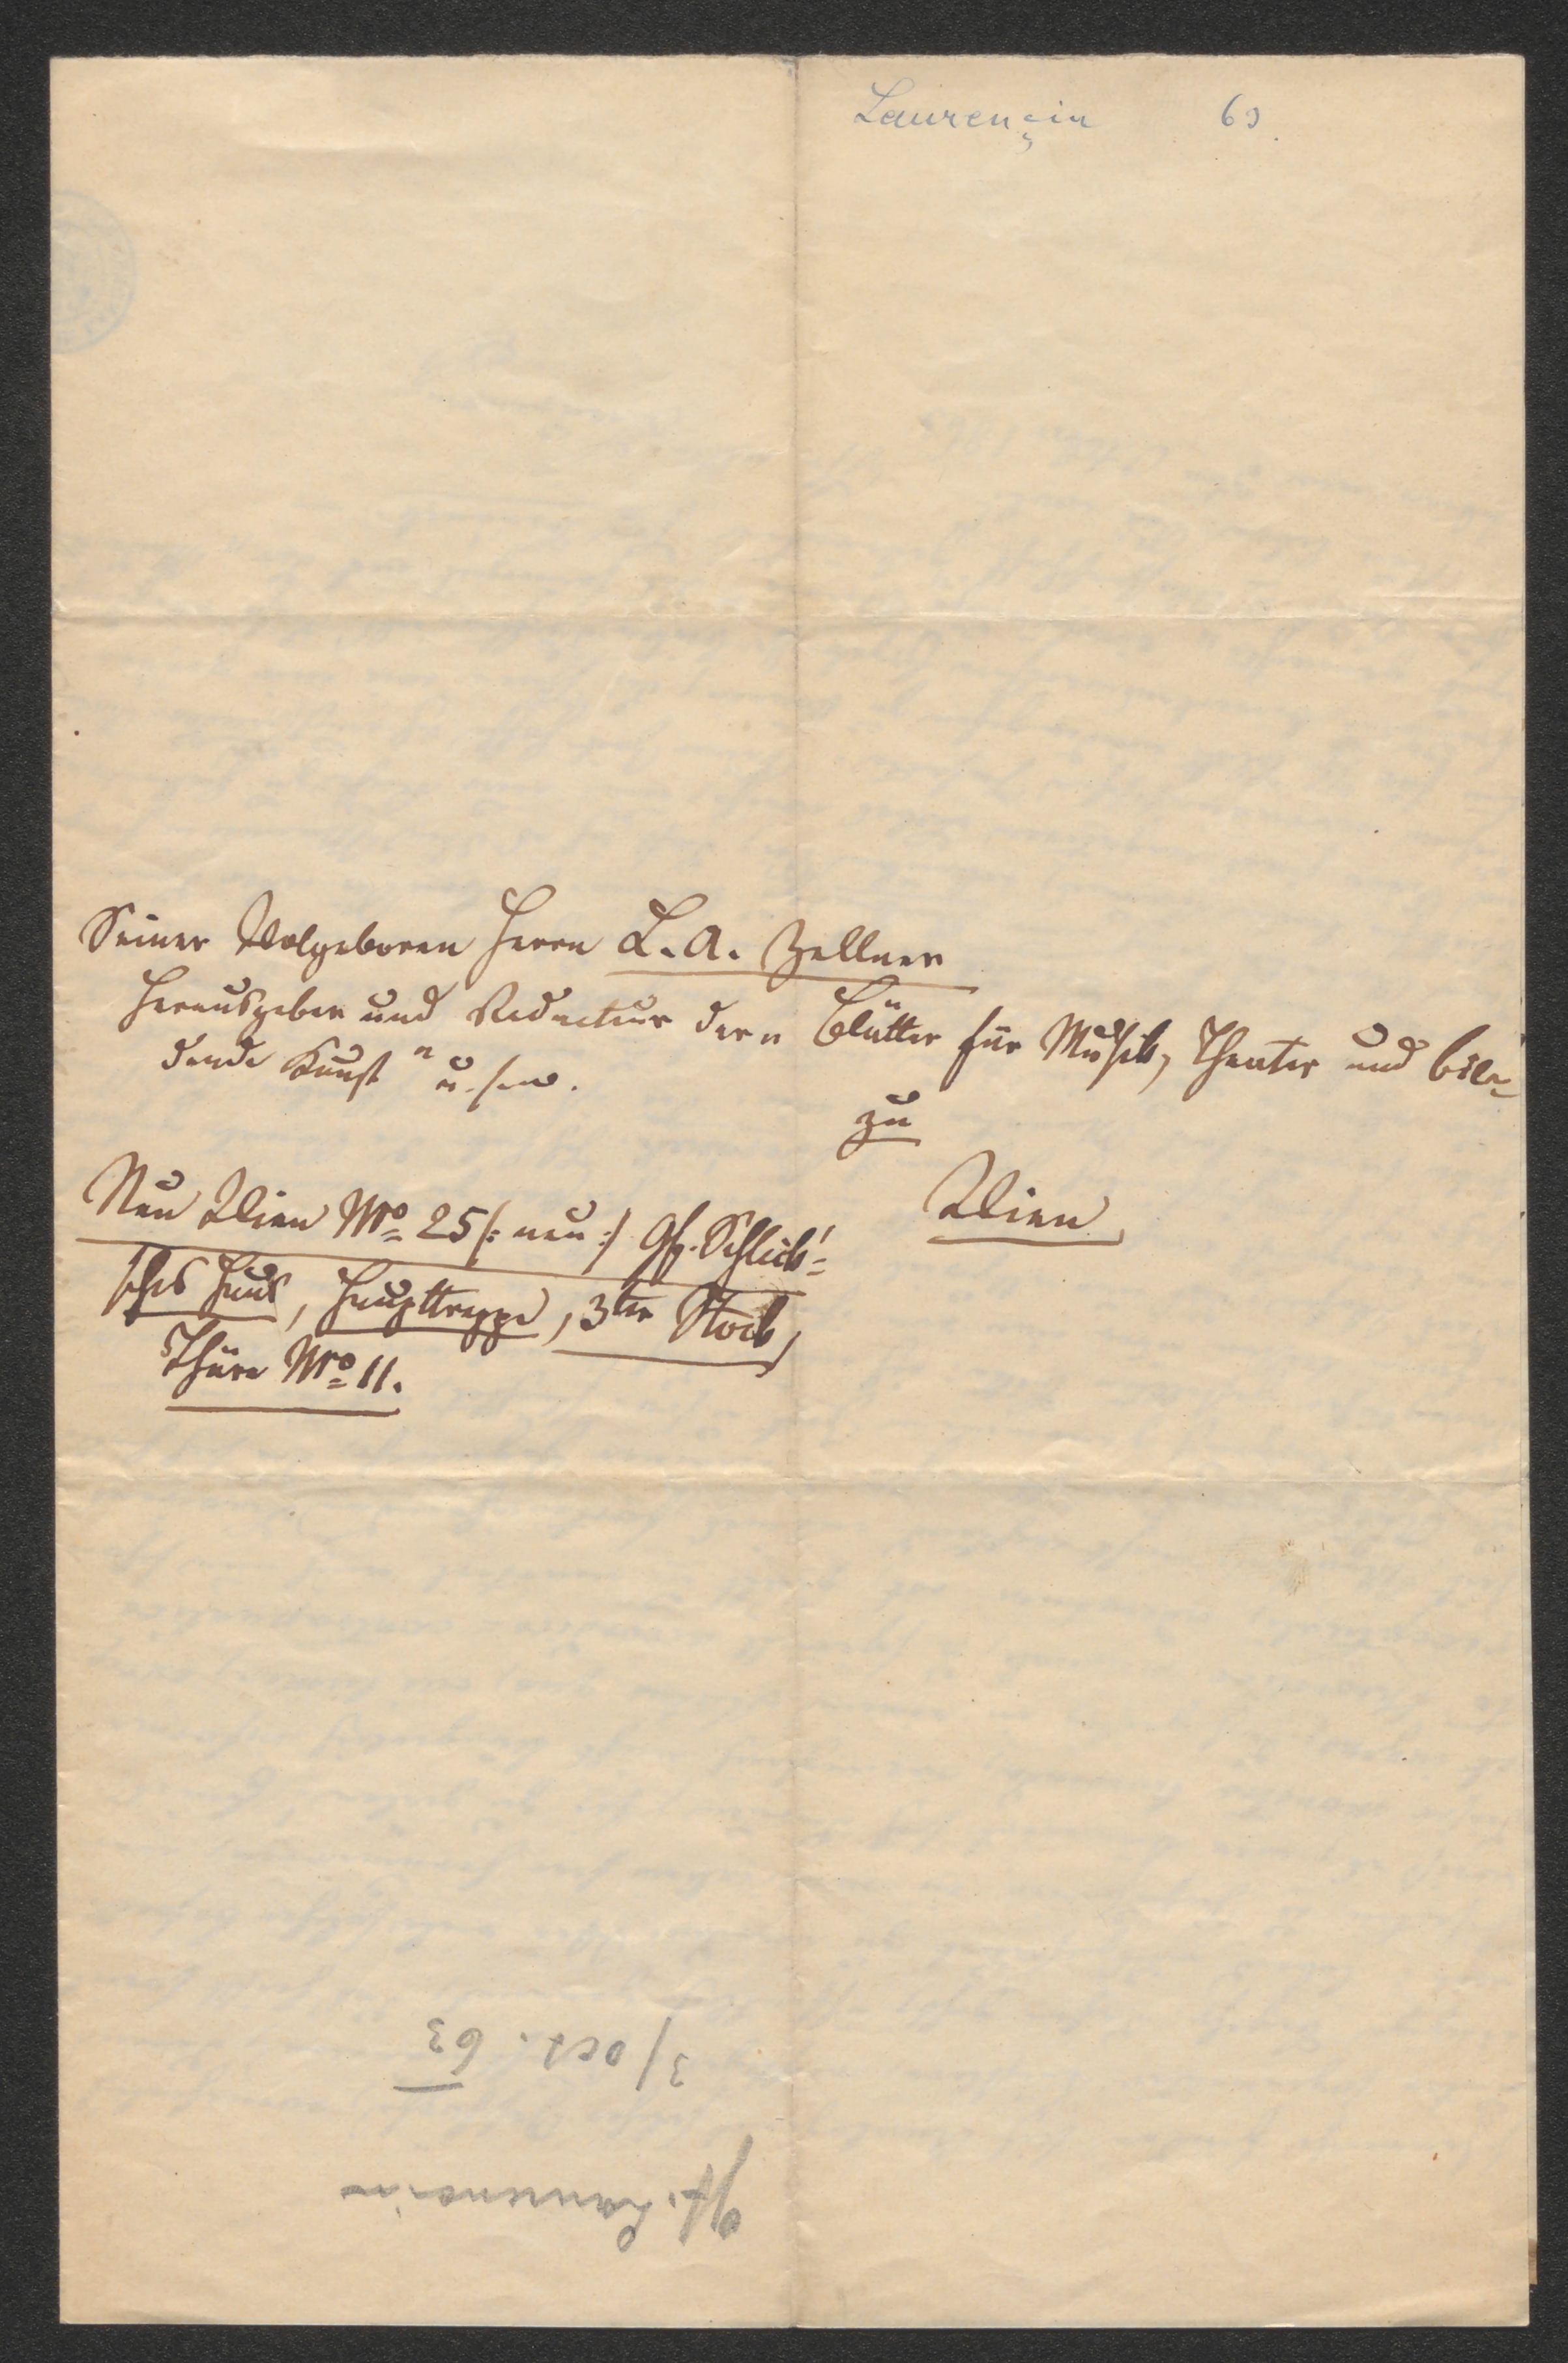 Laurençin 63.
Seiner Wolgeboren Herrn L. A. Zellner
Herausgeber und Redacteur der „Blätter für Musik, Theater und bil-
dende Kunst" u. s. w.
zu
Wien
Neu Wien No 25 /: neu :/ Gf. Schlick'-
sches Haus, Haupttreppe, 3ter Stock,
Thüre No 11.
3/ Oct. 63
Gf. Laurencin